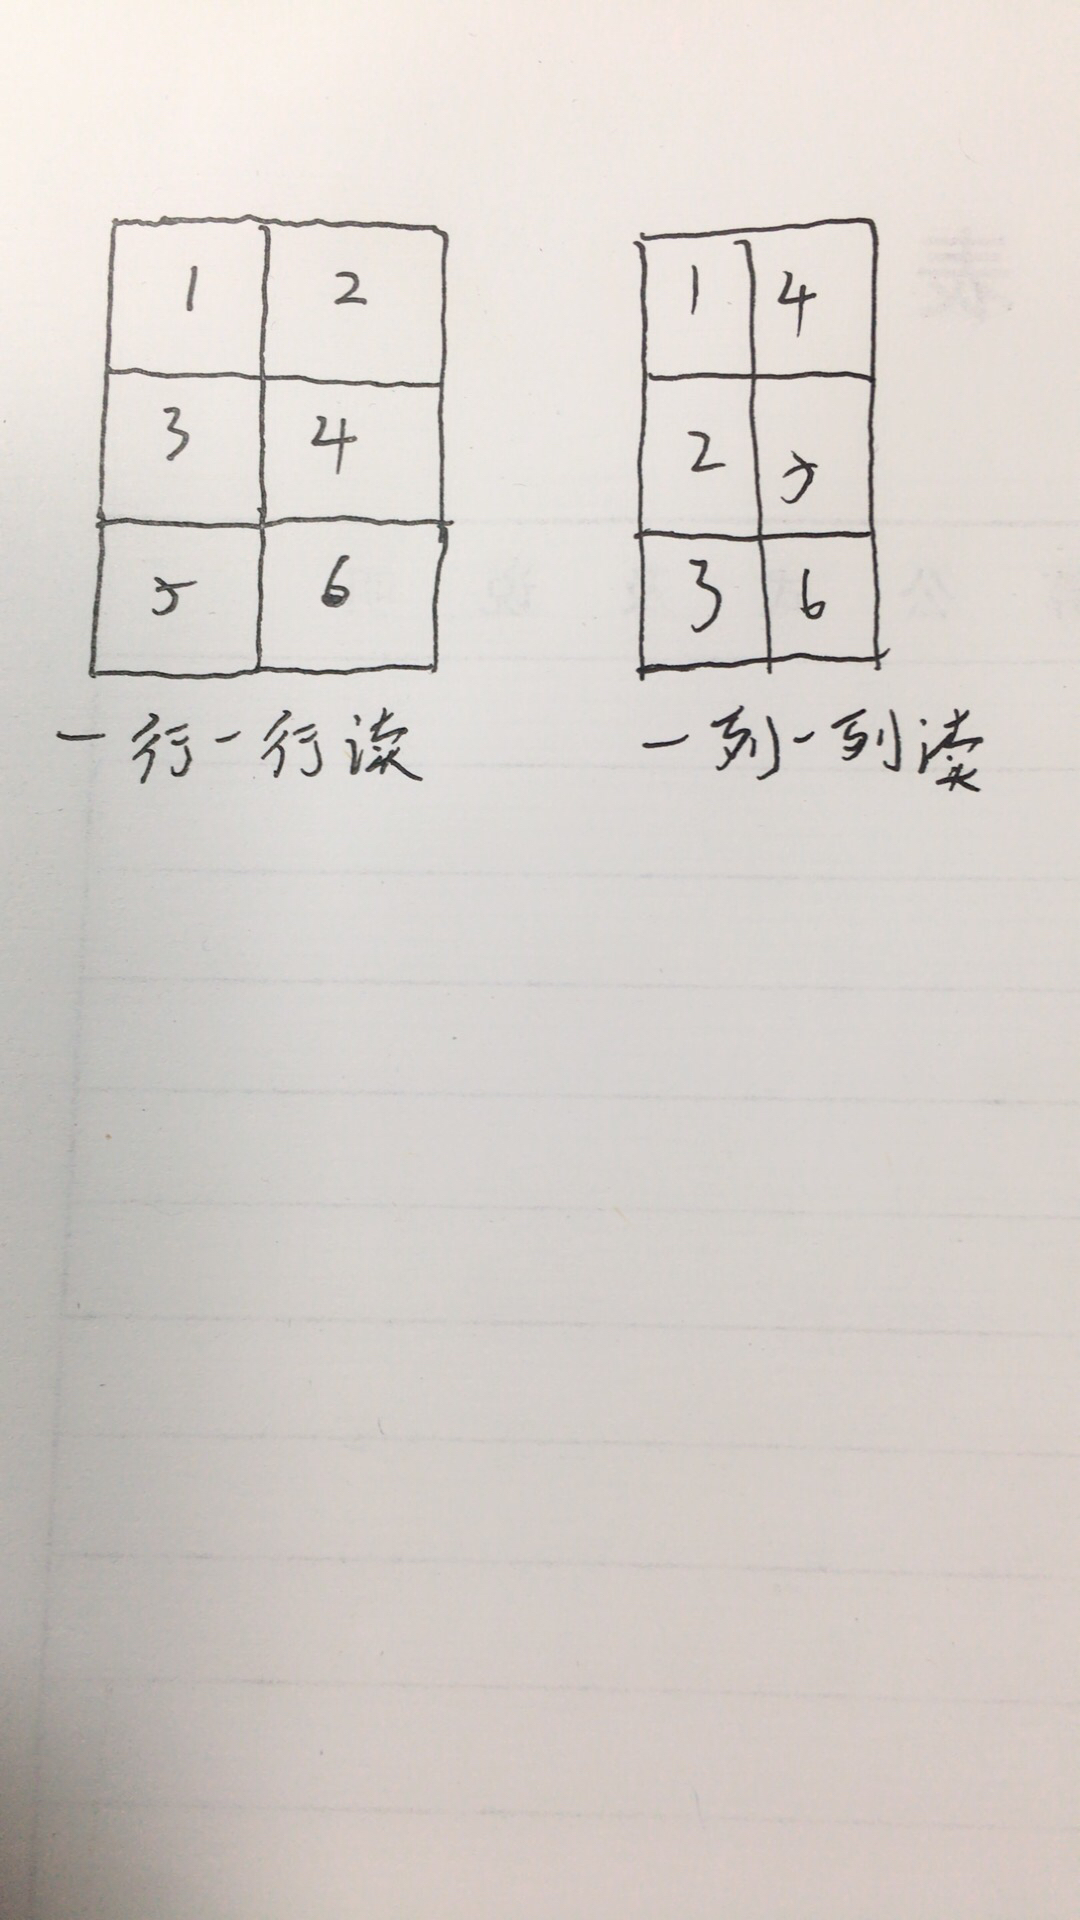 1 2
3 4
5 6
一行一行读
1 4
2 5
3 6
一列一列读